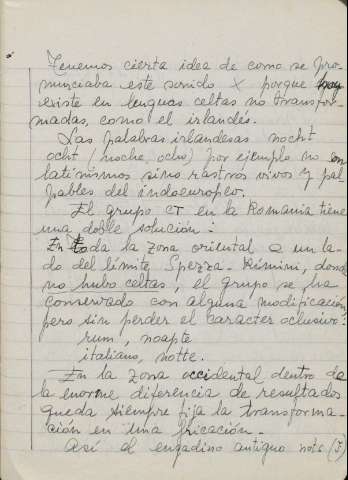 Tenemos cierta idea de como se pro-
nunciaba este sonido X porque hoy
existe en lenguas celtas no transfor-
madas, como el irlandés.
Las palabras irlandesas nocht
ocht (noche, ocho) por ejemplo no son
latinismos sino rastros vivos y pal
pables del indoeuropeo.
El grupo CT en la Romania tiene
una doble solución:
En toda la zona oriental a un la-
do del límite Spezza-Rímini, donde
no hubo celtas, el grupo se ha
conservado con alguna modificación
pero sin perder el caracter oclusivo:
rum, noapte
italiano, notte.
En la zona occidental dentro de
la enorme diferencia de resultados
queda siempre fija la transforma-
ción en una fricación.
Así al engadino antiguo